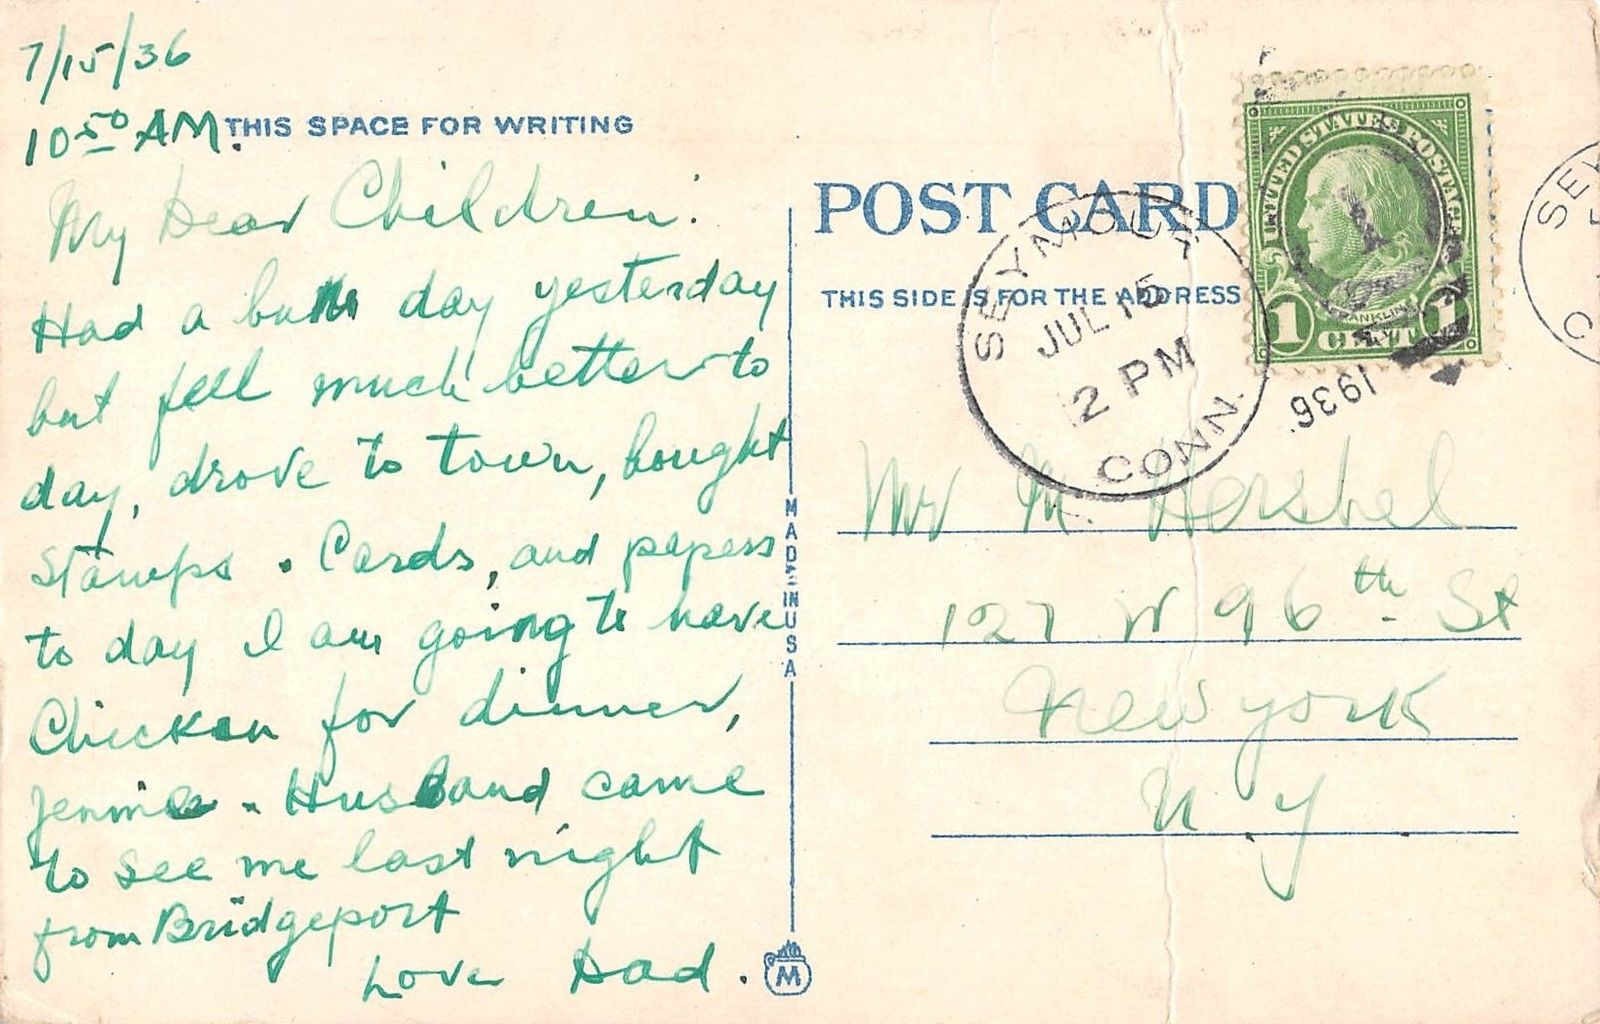 7/15/36
10 50 AM.
THIS SPACE FOR WRITING
My Dear Children:
Had a bum day yesterday
but feel much better to
day, drove to town, bought
Stamps. Cards, and papers
to day I am going to have
Chicken for dinner,
Jennie. Husband came
to see me last night
from Bridgeport
Love Dad.
MADE IN USA
M
POST CARD
THIS SIDE IS FOR THE ADDRESS
SEYMOUR
JUL 15
2 PM
1936
CONN.
UNITED STATES POSTAGE
FRANKLIN
1 CENT 1
Mr M. Hershel
127 W 96th St
New York
N.Y